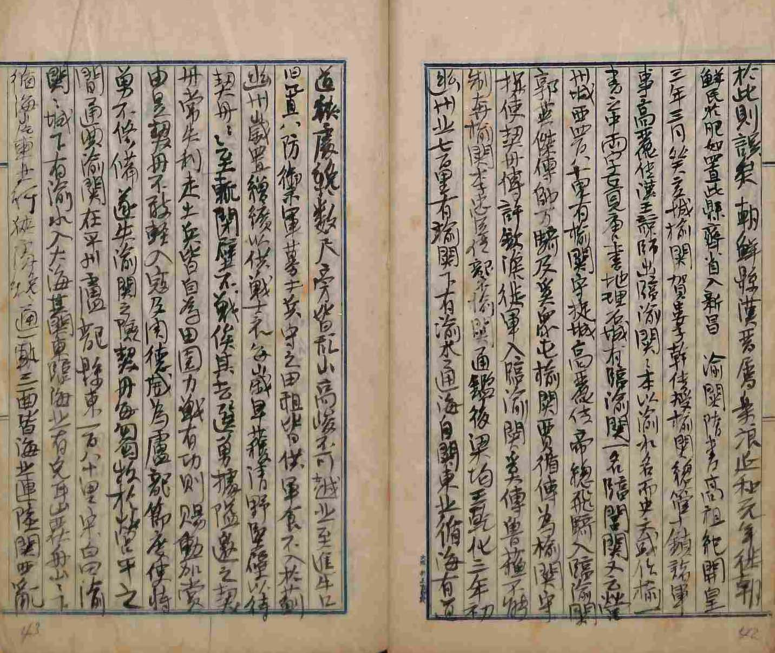 於此則誤矣 朝鮮縣漢晉屬樂浪延和元年徙朝
鮮民於肥如置此縣齊省入新昌 渝關隋書高祖紀開皇
三年三月癸亥城榆關賀婁子幹傳授榆關總管十鎮諸軍
事高麗傳漢王諒師出臨渝關〻本以渝水名而史或作榆一
書中兩字互見唐書地理石城有臨渝關一名臨閭關又云營
州城西四百八十里有榆關守捉城高麗傳帝總飛騎入臨渝關
郭英傑傳帥萬騎及奚眾屯榆關賈循傳為榆關守
捉使契丹傳許欽澹徙軍入臨渝關奚傳魯蘇不能
制奔榆關李忠臣傳榆關通鑑後梁均王乾化三年初
幽州北七百里有渝關下有渝水通海自關東北循海有道
道狹處纔數尺旁皆亂山高峻不可越北至進牛口
旧置八防禦軍募土兵守之田租皆供軍食不入於薊
幽州歲置繒纊以供戰士衣每歲早穫清野堅壁以待
契丹〻至輒閉壁不戰俟其去選勇據隘邀之契
丹常失利走土兵皆自為田園力戰有功則賜勳加賞
由是契丹不敢輕入寇及周德威為盧龍節度使恃
勇不修備遂失渝關之險契丹每芻牧於營平之
間 通典渝關在平州盧龍縣東一百八十里宋白曰渝
關〻城下有渝水入大海其關東臨海北有兔耳山覆舟山〻
循海岸東北行狹處纔通一軌三面皆海北連陸關西亂
42
43